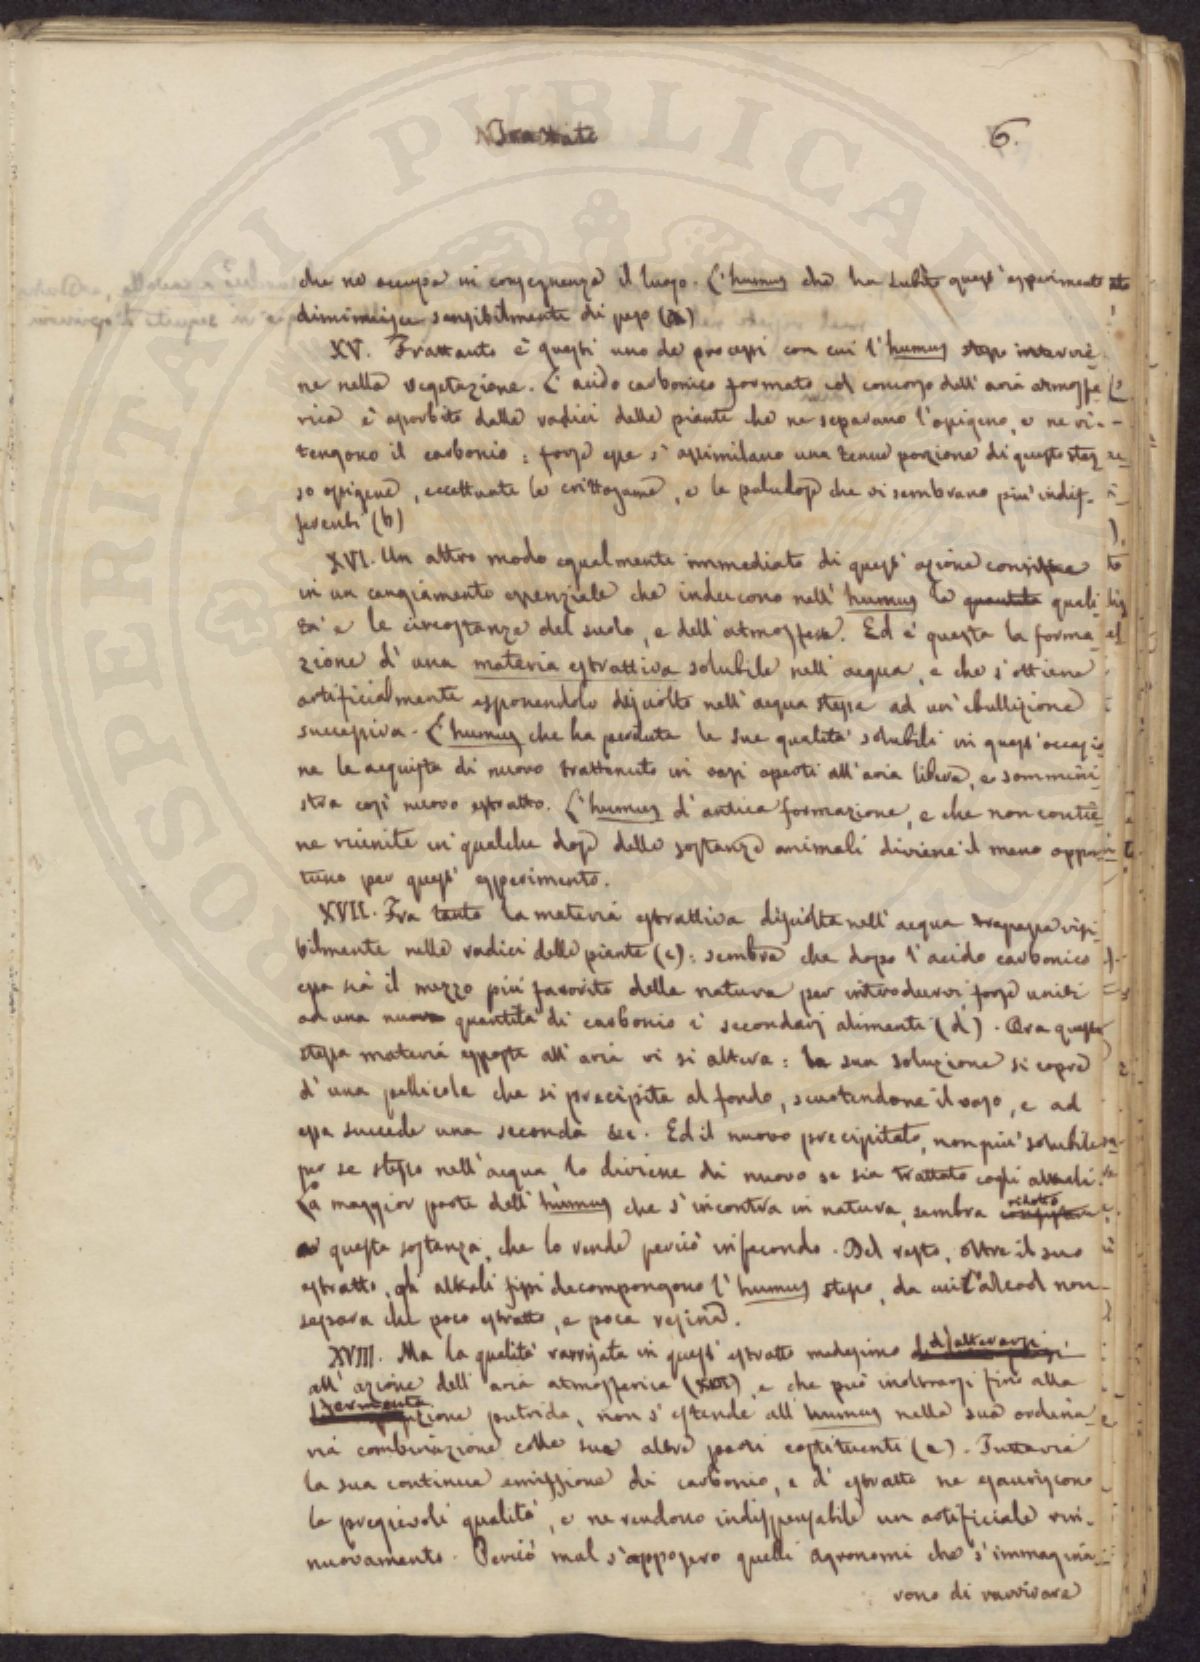 6.
che ne occupa in conseguenza il luogo. L'humus che ha subìto quest'esperimento
diminuisce sensibilmente di peso (a)
XV. Frattanto è questi uno de processi con cui l'humus stesso intervie-
ne nella vegetazione. L'acido carbonico formato col concorso dell'aria atmosfe-
rica è assorbito dalle radici delle piante che ne separano l'ossigeno, e ne ri-
tengono il carbonio: forse esse s'assimilano una tenue porzione di questo stes-
so ossigene, eccettuate le crittogame, e le paludose che vi sembrano più indif-
ferenti (b)
XVI. Un altro modo egualmente immediato di quest'azione consiste
in un cangiamento essenziale che inducono nell'humus le quantità quali-
tà e le circostanze del suolo, e dell'atmosfera. Ed è questa la forma-
zione d'una materia estrattiva solubile nell'acqua, e che s'ottiene
artificialmente esponendolo disciolto nell'acqua stessa ad un'ebullizione
successiva. L'humus che ha perduta le sue qualità solubili in quest'occasio
ne le acquista di nuovo trattenuto in vasi aperti all'aria libera, e sommini-
stra così nuovo estratto. L'humus d'antica formazione, e che non contie-
ne riunite in qualche dose delle sostanze animali diviene il meno oppor-
tuno per quest'esperimento.
XVII. Fra tanto la materia estrattiva disciolta nell'acqua trapassa visi-
bilmente nelle radici delle piante (c): sembra che dopo l'acido carbonico
essa sia il mezzo più favorito della natura per introdurvi forse uniti
ad una nuova quantità di carbonio i secondarj alimenti (d). Ora questa
stessa materia esposta all'aria vi si altera: la sua soluzione si copre
d'una pellicola che si precipita al fondo, scuotendone il vaso, e ad
essa succede una seconda &c. Ed il nuovo precipitato, non più solubile
per se stesso nell'acqua, lo diviene di nuovo se sia trattato cogli alkali.
La maggior parte dell'humus che s'incontra in natura, sembra ridotto
questa sostanza, che lo rende perciò infecondo. Del resto, oltre il suo
estratto, gli alkali fissi decompongono l'humus stesso, da cui l'alcool non
separa che poco estratto, e poca resina.
XVIII. Ma la qualità ravvisata in quest'estratto medesimo d'alterarsi
all'azione dell'aria atmosferica (XVII), e che può inoltrarsi fino alla
fermentazione putrida, non s'estende all'humus nella sua ordina-
ria combinazione colle sue altre parti costituenti (e). Tuttavia
la sua continua emissione di carbonio, e d'estratto ne esauriscono
le pregievoli qualità, e ne rendono indispensabile un artificiale rin-
nuovamento. Perciò mal s'apposero quelli agronomi che s'immagina-
rono di ravvivare